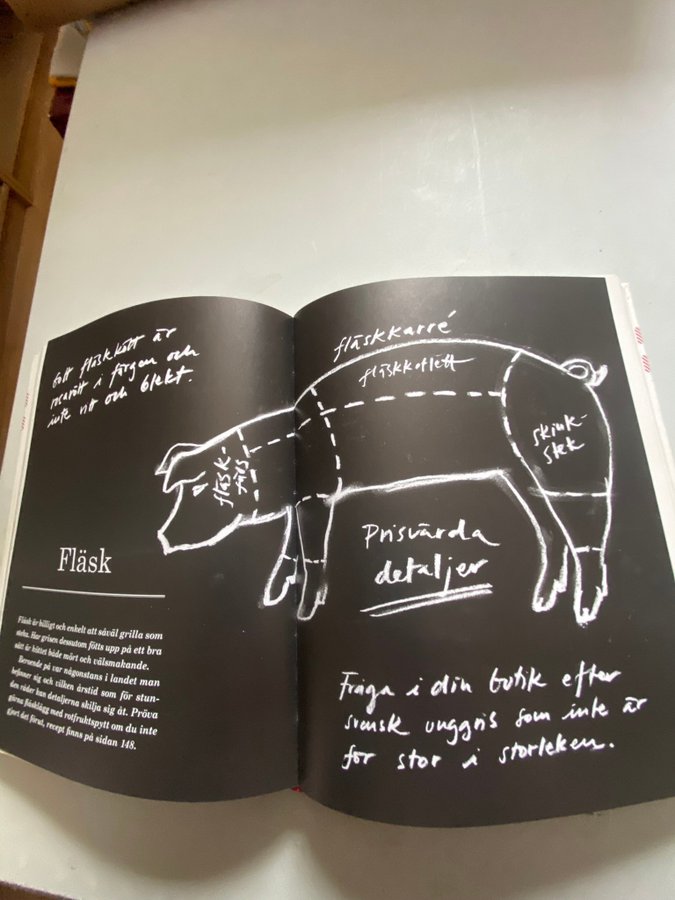 Gott fläskkött är
rosarött i färgen och
inte vit och blekt.
fläskkarré
fläskkotlett
fläsk-
färs
skink-
stek
Prisvärda
detaljer
Fläsk
Fläsk är billigt och enkelt att såväl grilla som
steka. Har grisen dessutom fötts upp på ett bra
sätt är köttet både mört och välsmakande.
Beroende på var någonstans i landet man
befinner sig och vilken årstid som för stun-
den råder kan detaljerna skilja sig åt. Pröva
gärna fläsklägg med rotfruktspytt om du inte
gjort det förut, recept finns på sidan 148.
Fråga i din butik efter
svensk unggris som inte är
för stor i storleken.